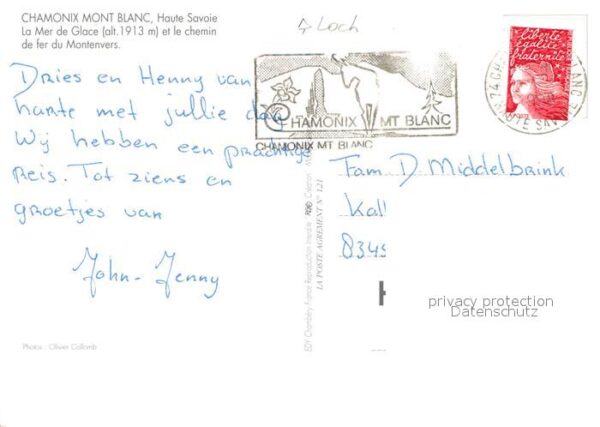 CHAMONIX MONT BLANC, Haute Savoie
La Mer de Glace (alt. 1913 m) et le chemin
de fer du Montenvers.
Loch
Dries en Henny van
harte met jullie dag
Wij hebben een prachtige
reis. Tot ziens en
groetjes van
John-Jenny
Photos : Olivier Collomb
EDY Chambéry France Reproduction Interdite
LA POSTE AGREMENT N° 121
CHAMONIX MT BLANC
CHAMONIX MT BLANC
liberté
égalité
fraternité
Fam D. Middelbrink
Kall
8345
privacy protection
Datenschutz